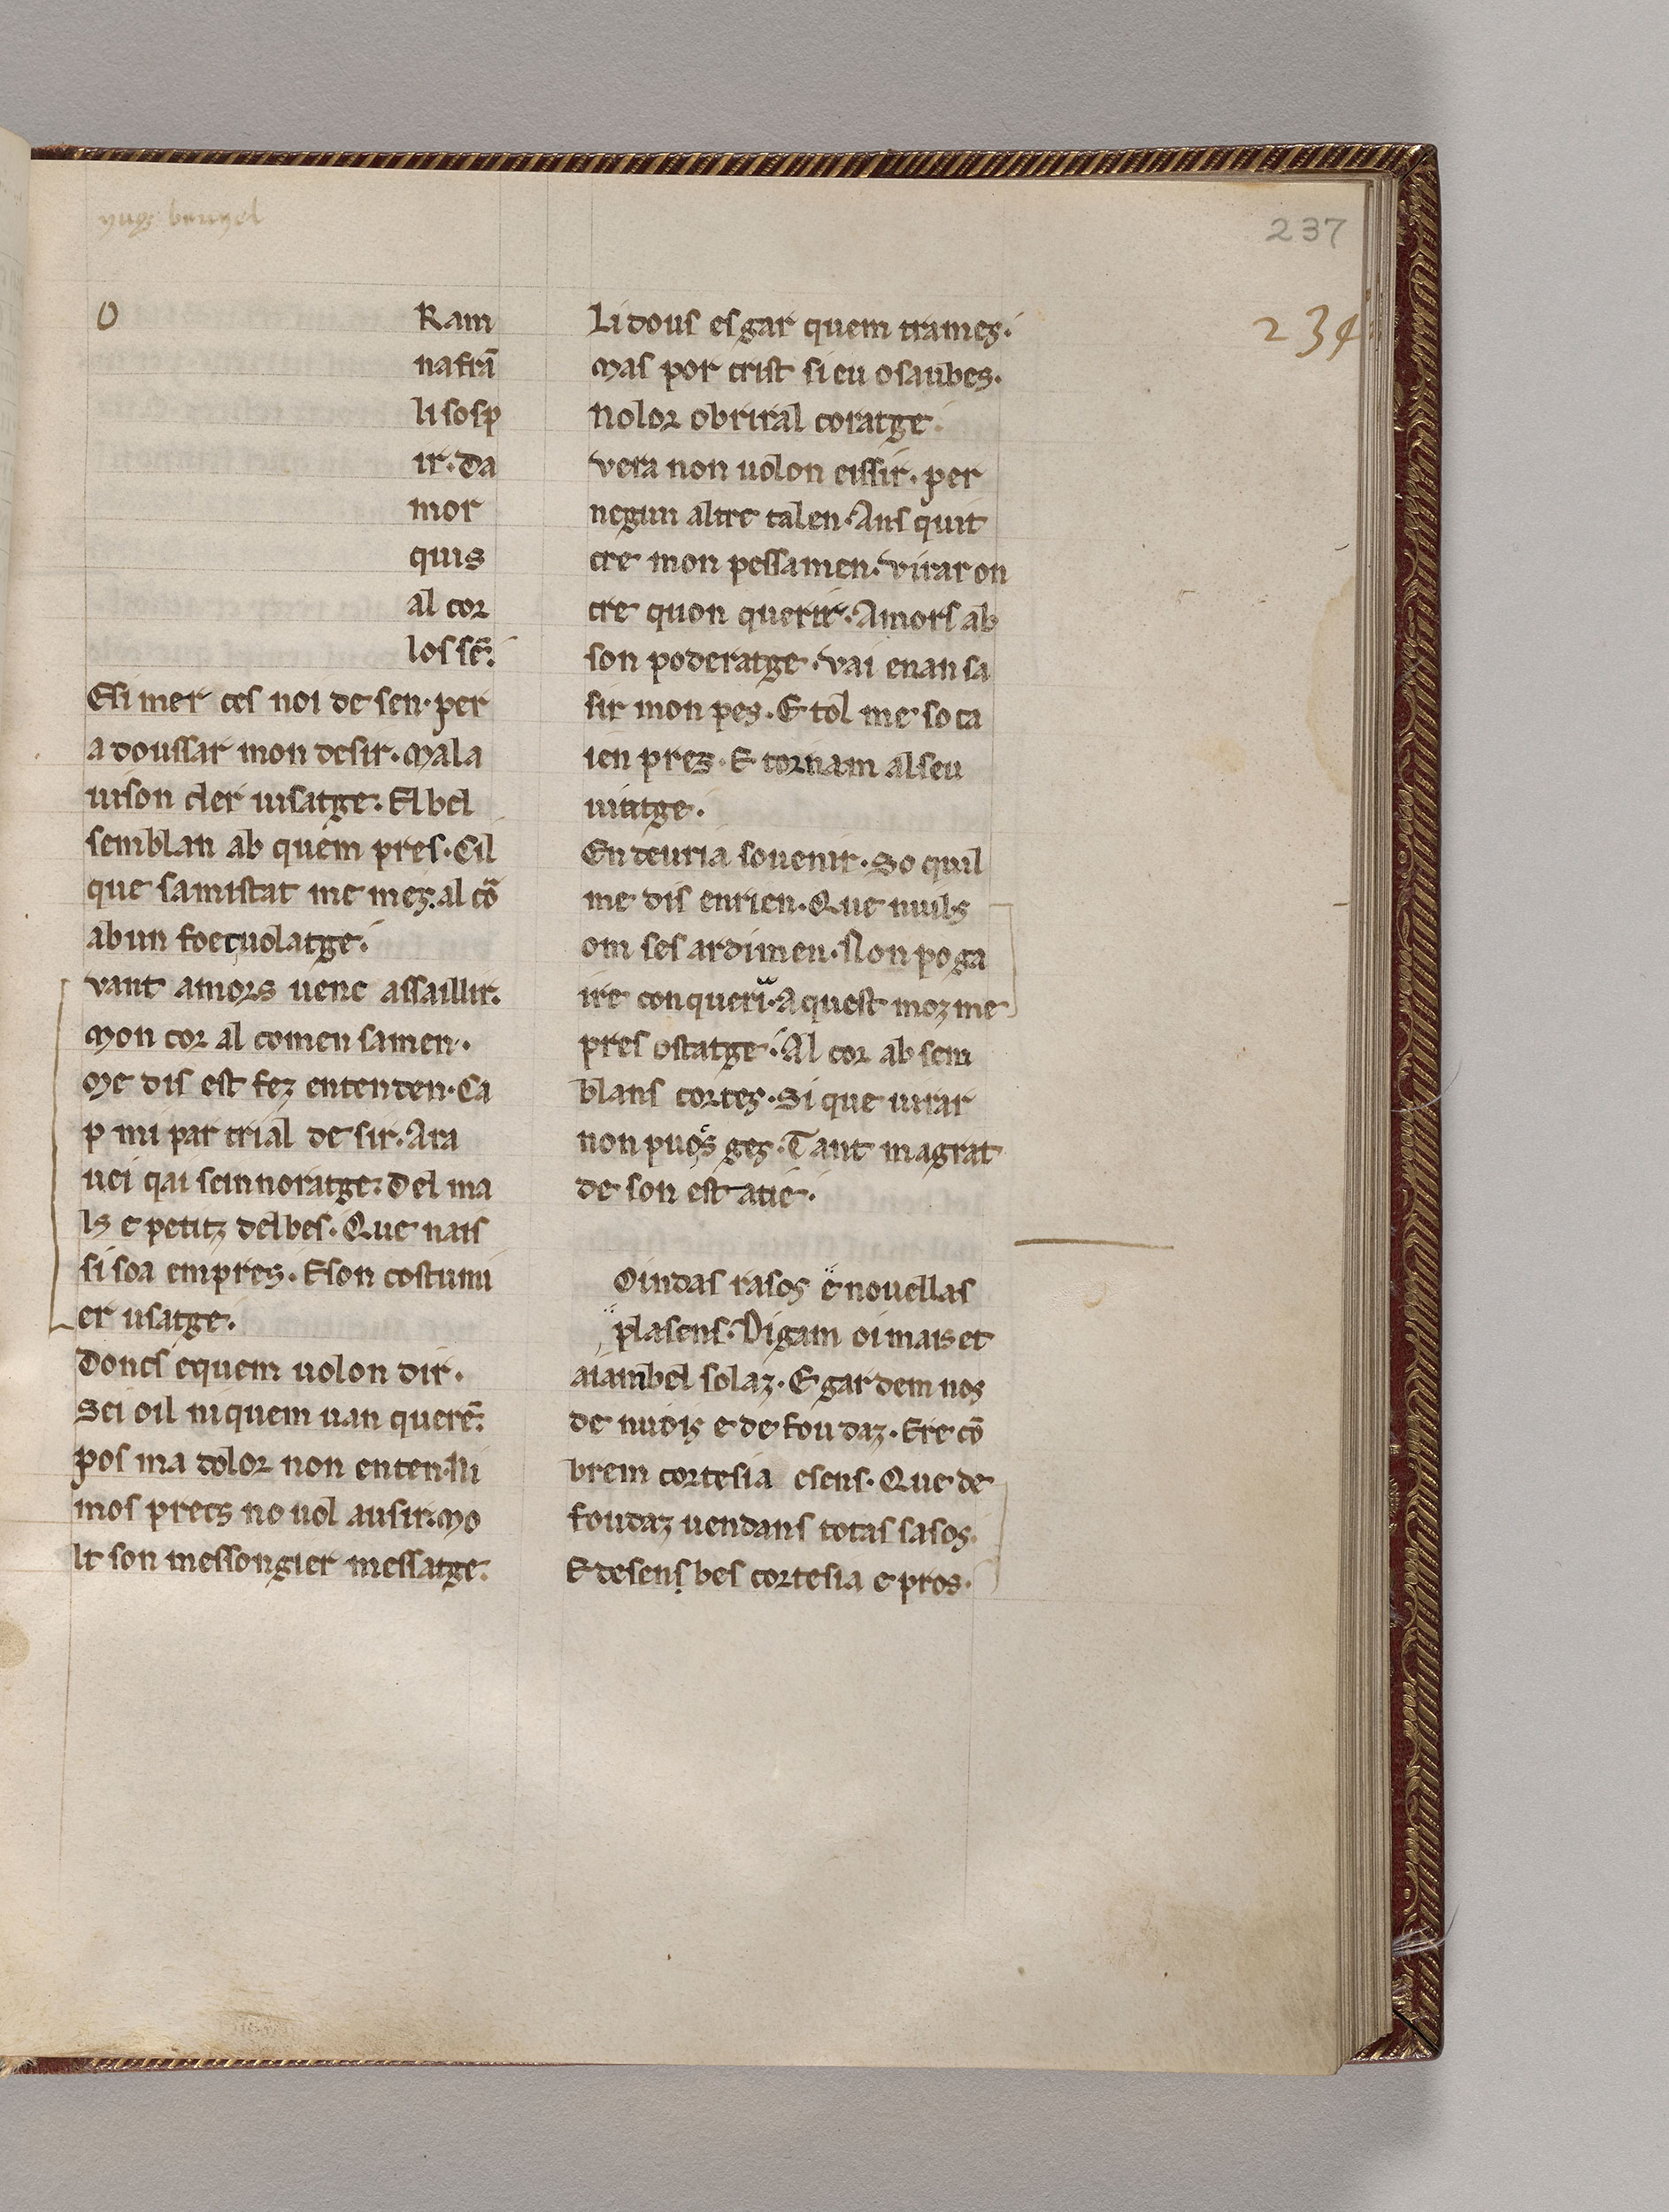 nugs brunel
237
234
O
Ram
nafrā
li sosp
ir. da
mor
quis
al cor
los sē.
E si mer ces noi de sen. per
a doussar mon desir. Mal a
uison cler uisatge. El bel
semblan ab quem pres. Cil
que samistat me mez. al cō
ab un foec uolatge.
vant amors uenc assaillir.
Mon cor al comen samen.
Me dis est fez entenden. Ca
p mi par trial de sir. Ara
uei qai seinnoratge. Del ma
ls e petitz delbes. Que nais
si soa empres. E son costumi
er usatge.
Doncs equem uolon dir.
Sei oil ni quem uan querē.
pos ma dolor non enten. Ni
mos precs no uol ausir. Mo
lt son messongier messatge.
Li dous es gar quem trames.
Mas por crist si eu o saubes.
No lor obriral coratge.
vera non uolon eissir. per
negun altre talen. Ans quit
cre mon pessamen. virar on
cre quon querir. Amors ab
son poderatge. vai enan sa
sir mon pes. E tol me so ca
ien pres. E tornam al seu
uiatge.
En deuria souenir. So quil
me dis en rien. Que nuils
om ses ardimen. Non po ga
ire con queri. Aquest moz me
pres ostatge. Al cor ab sem
blans cortes. Si que uirar
non puos ges. Tant magrat
de son estatie.
Oindas rasos e nouellas
plasens. Digam oi mais et
aiam bel solaz. E gardem nos
de nuois e de foudaz. E re cō
brem cortesia e sens. Que de
foudaz uendans totas sasos.
E desens bes cortesia e pros.